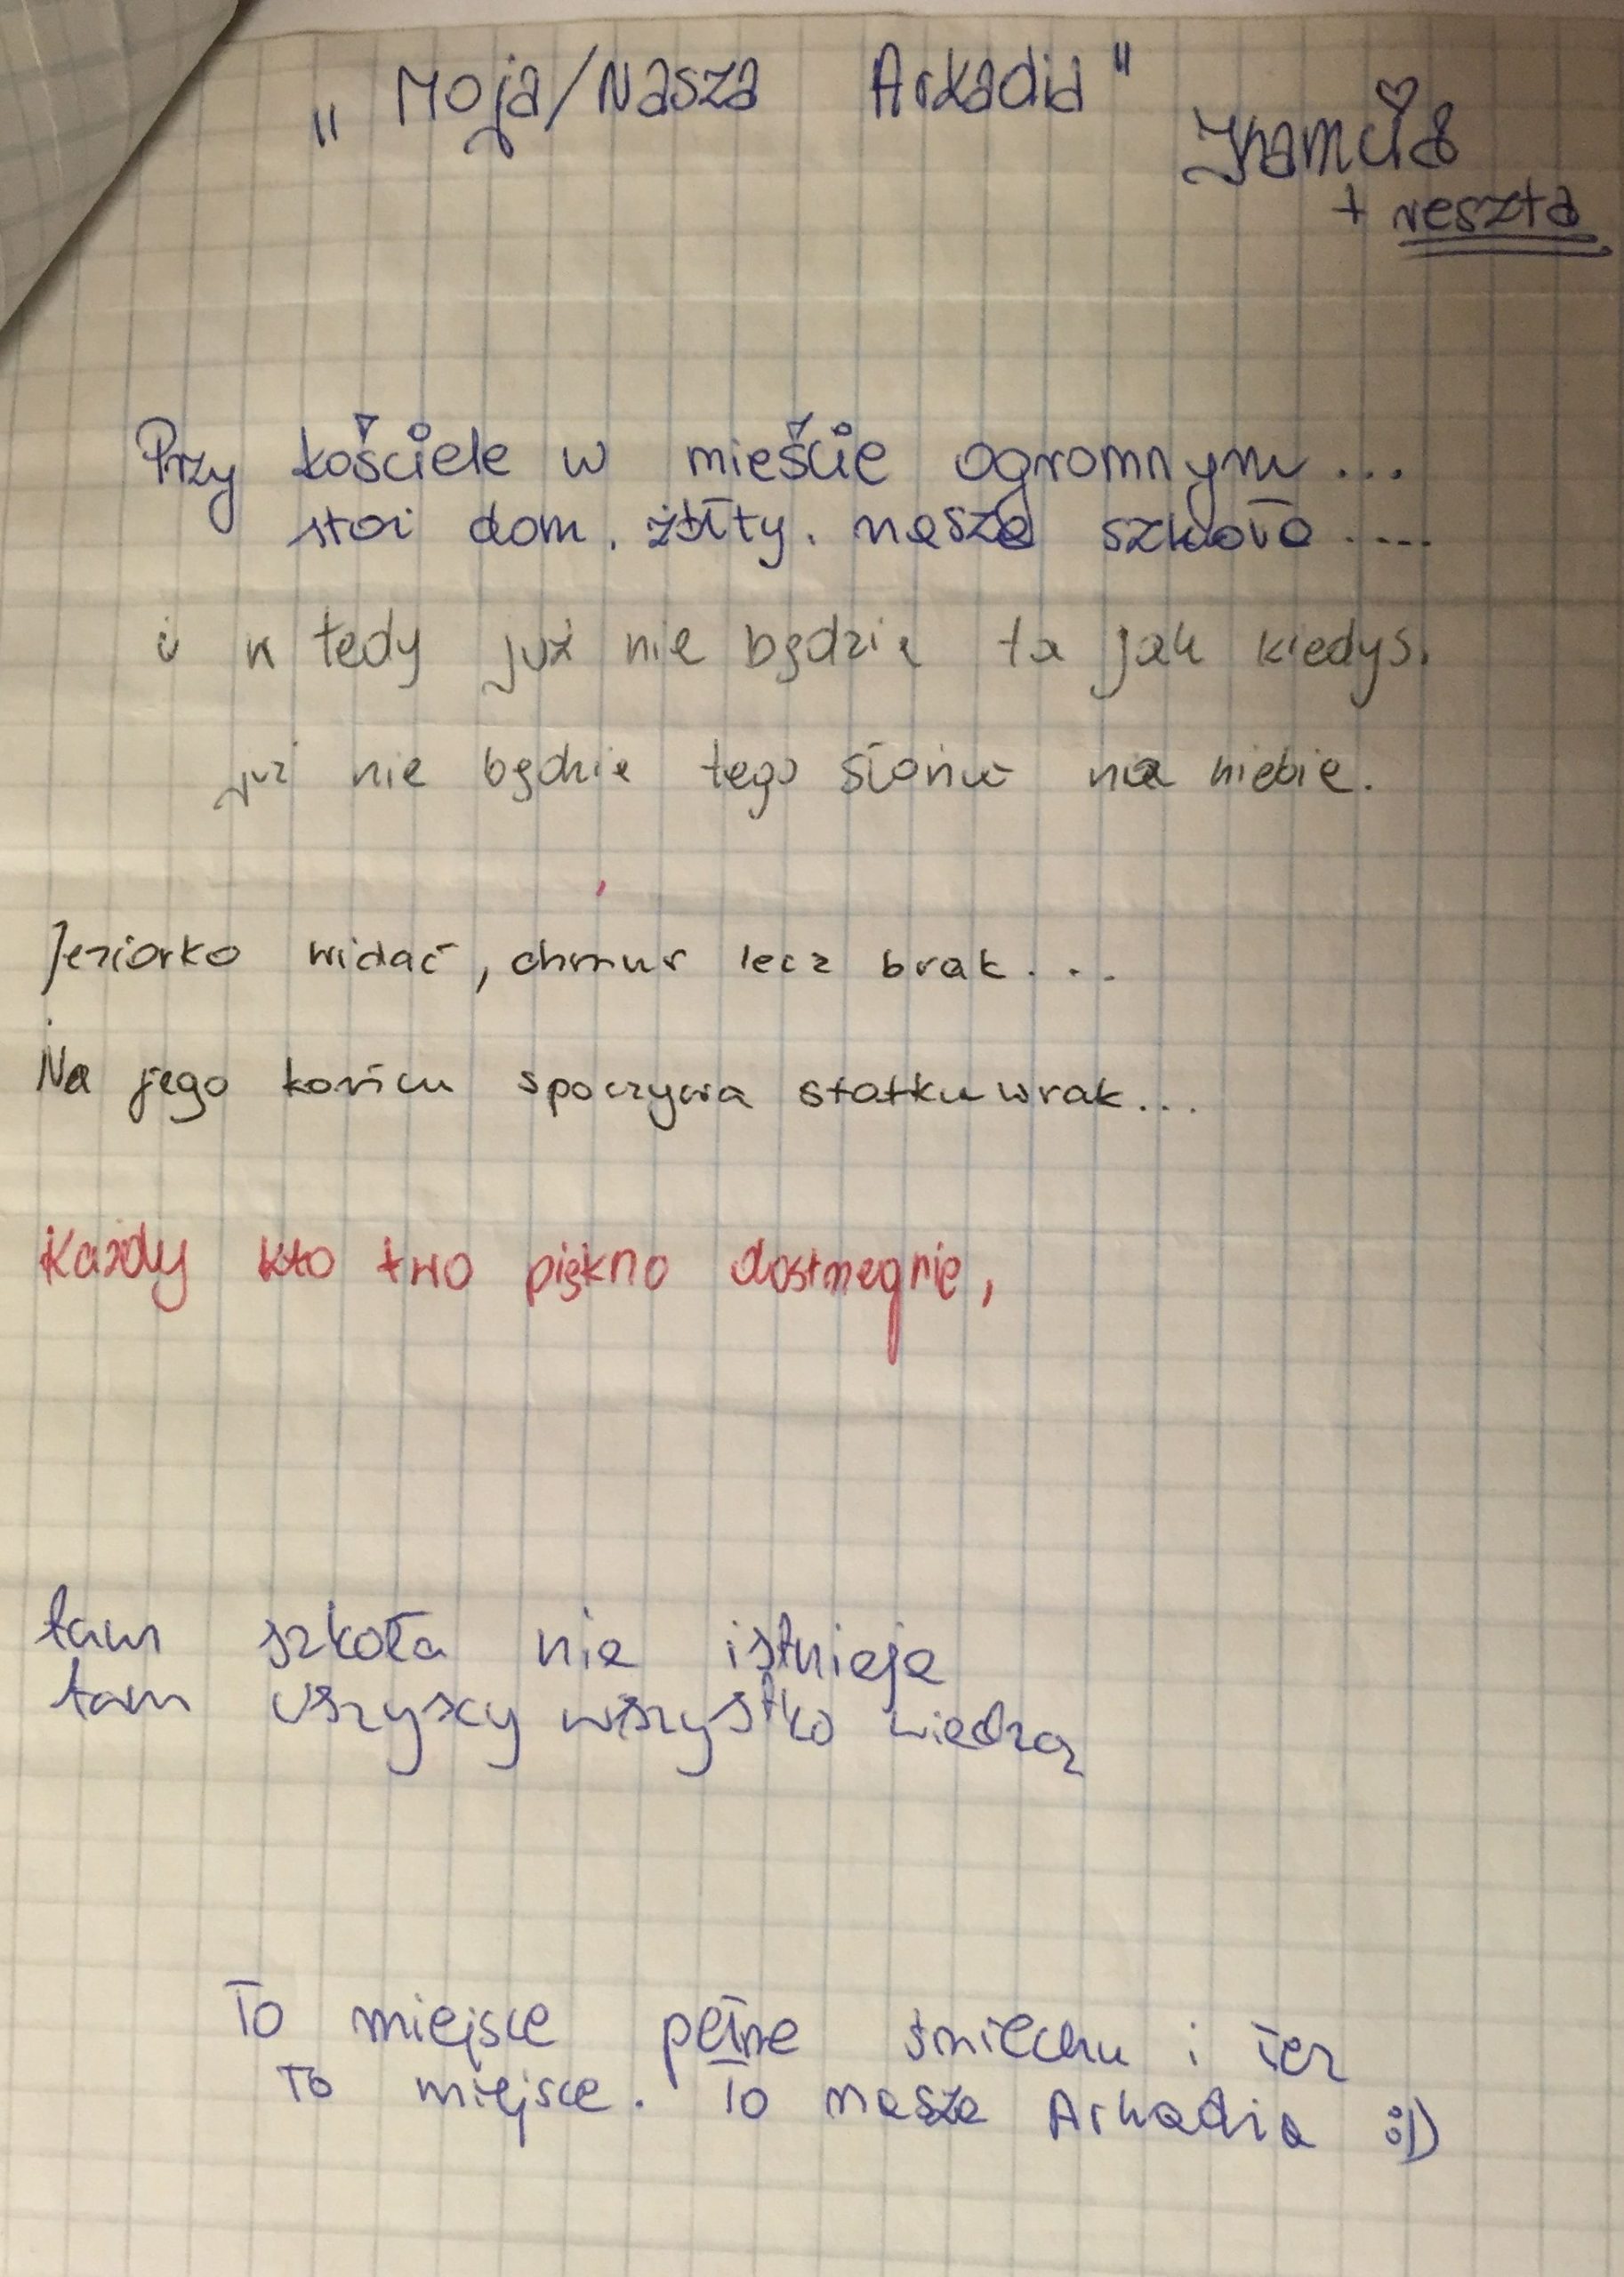 „Moja/Nasza Arkadia"
+ reszta
Przy kościele w mieście ogromnym...
stoi dom. żółty. nasza szkoła....
i wtedy już nie będzie ta jak kiedyś.
już nie będzie tego słońca na niebie.
Jeziorko widać, chmur lecz brak...
Na jego końcu spoczywa statku wrak...
Każdy kto two piękno dostrzegnie,
tam szkoła nie istnieje
tam wszyscy wszystko wiedzą
To miejsce pełne śmiechu i łez
To miejsce. To nasza Arkadia :D